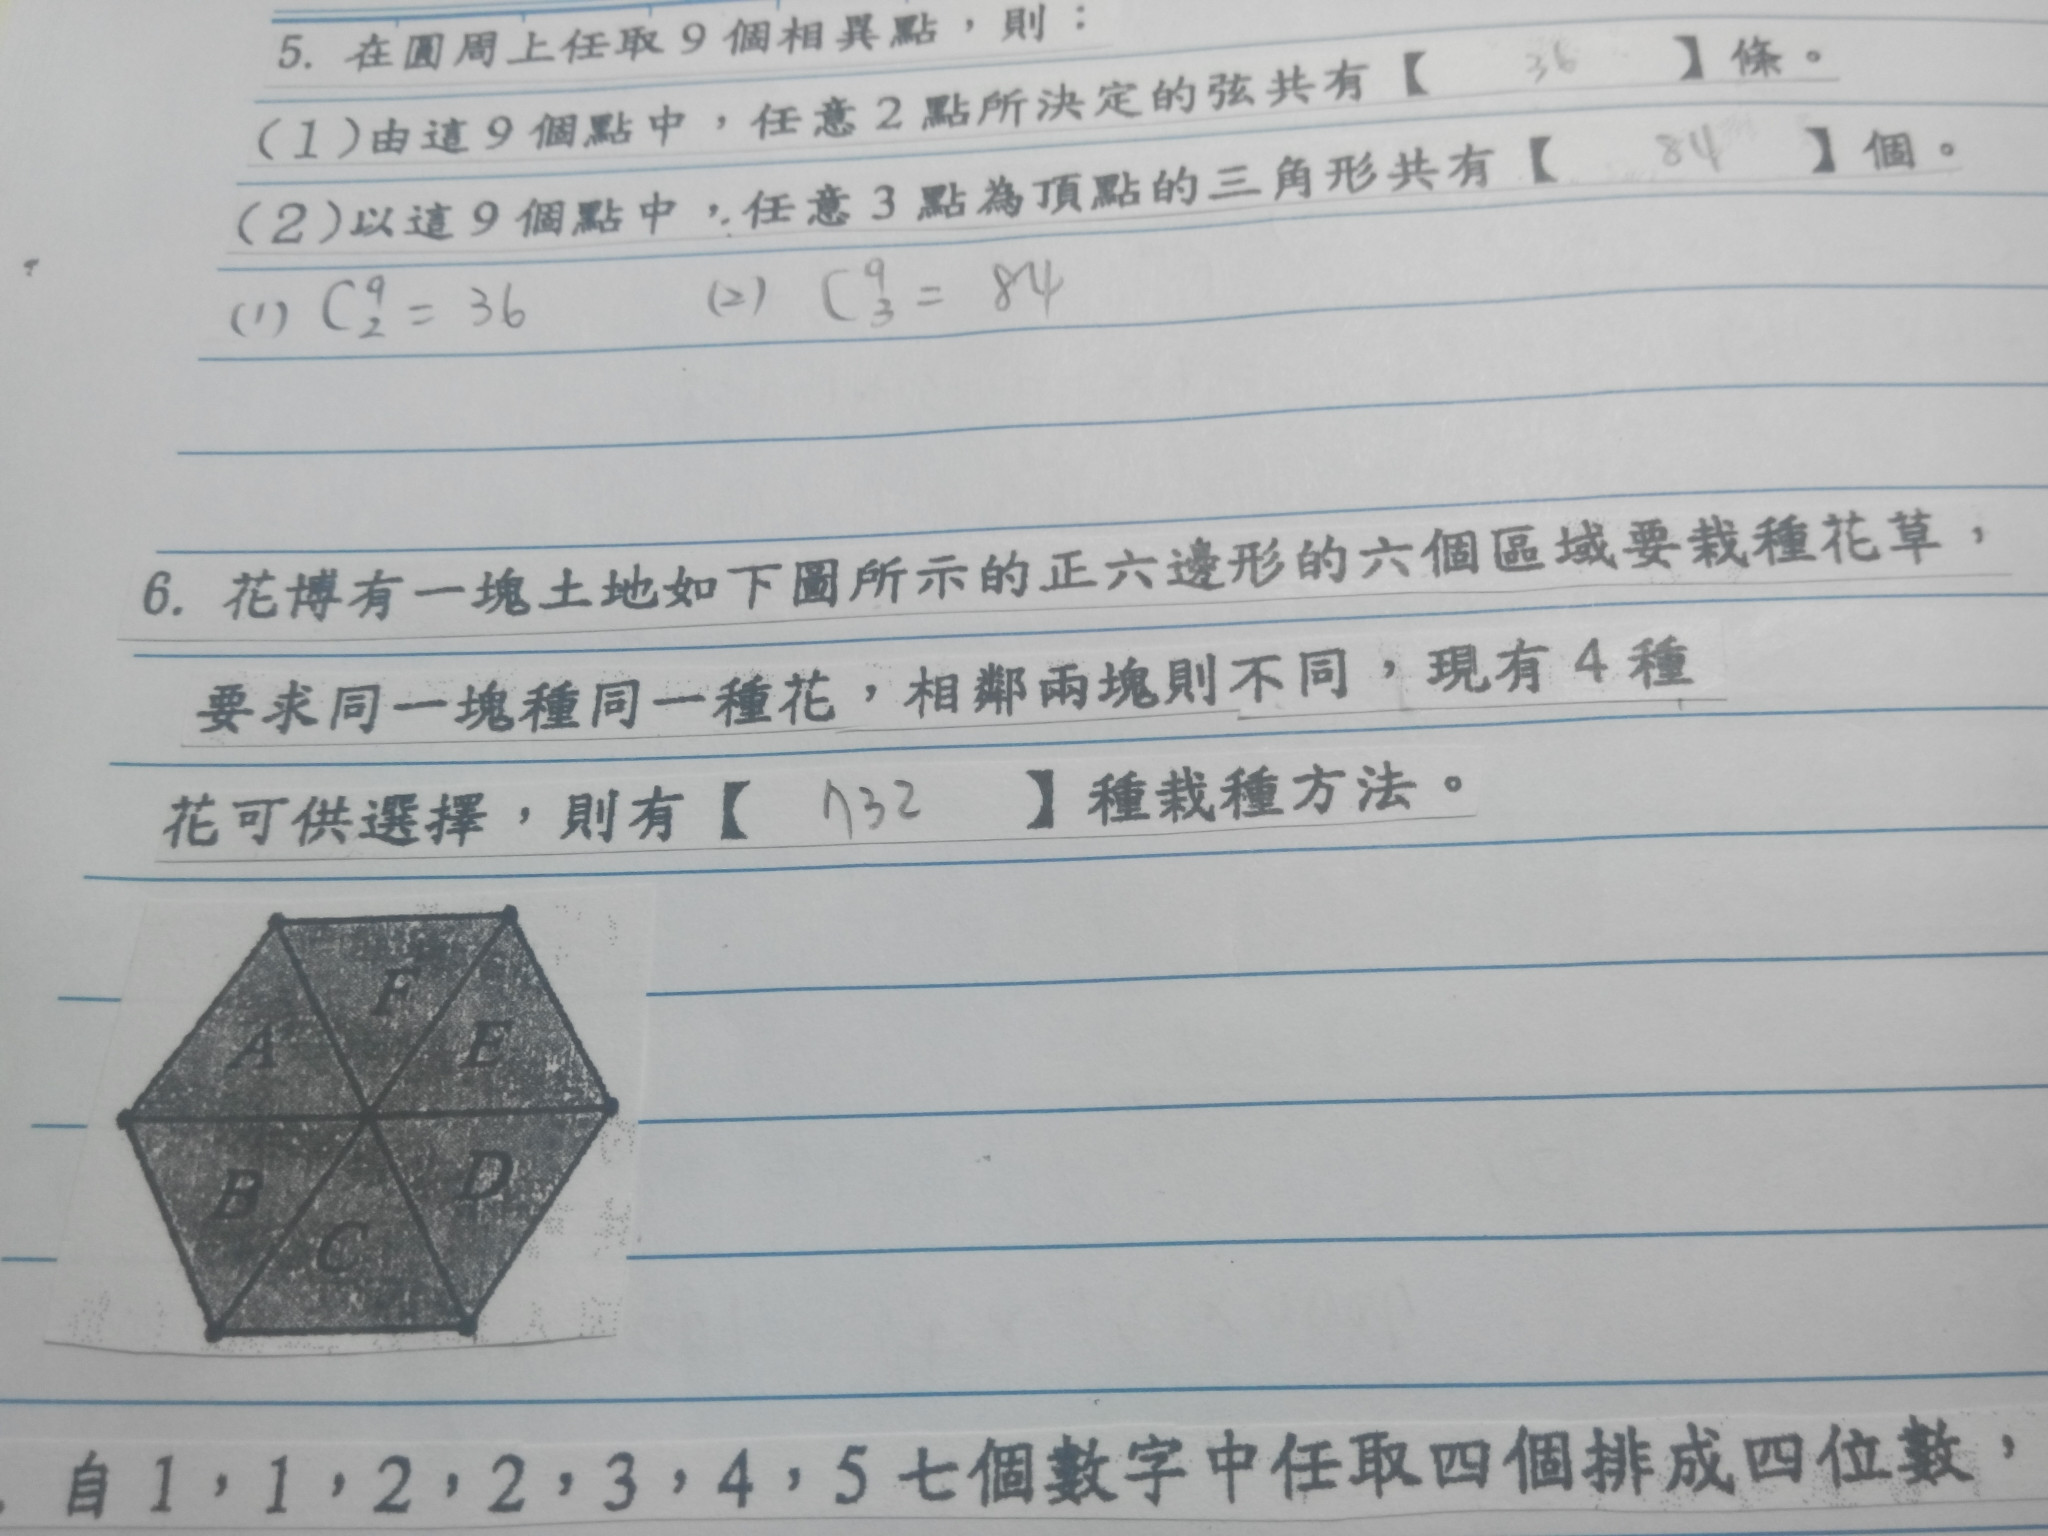 5. 在圓周上任取9個相異點，則：
(1)由這9個點中，任意2點所決定的弦共有【 36 】條。
(2)以這9個點中，任意3點為頂點的三角形共有【 84 】個。
(1) C⁹₂ = 36 (2) C⁹₃ = 84
6. 花博有一塊土地如下圖所示的正六邊形的六個區域要栽種花草，
要求同一塊種同一種花，相鄰兩塊則不同，現有4種
花可供選擇，則有【 732 】種栽種方法。
F
A E
B D
C
自1，1，2，2，3，4，5七個數字中任取四個排成四位數，